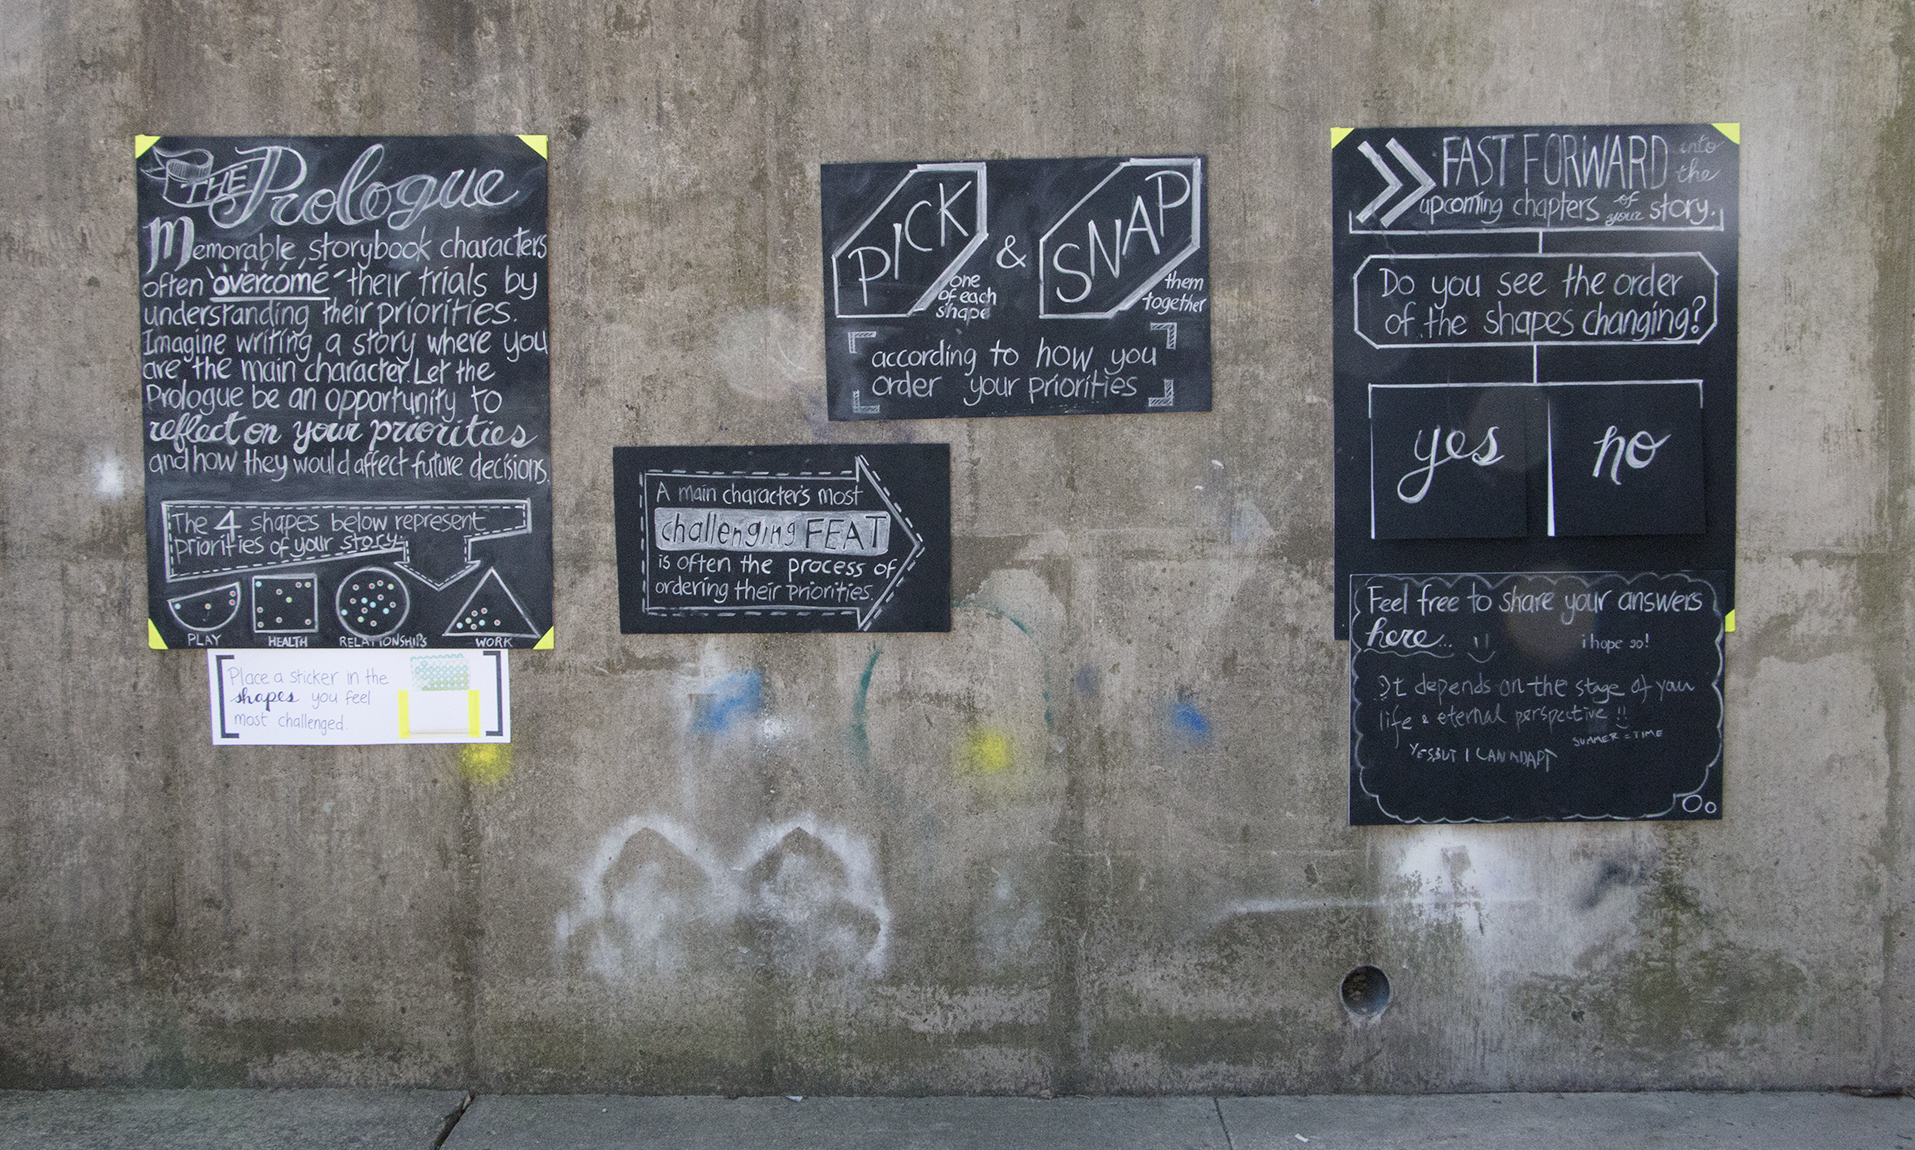 THE Prologue
Memorable, storybook characters
often overcome their trials by
understanding their priorities.
Imagine writing a story where you
are the main character. Let the
Prologue be an opportunity to
reflect on your priorities
and how they would affect future decisions.
The 4 shapes below represent
priorities of your story.
PLAY HEALTH RELATIONSHIPS WORK
Place a sticker in the
shapes you feel
most challenged.
PICK & SNAP
one
of each
shape
them
together
according to how you
order your priorities
A main character's most
challenging FEAT
is often the process of
ordering their priorities.
FAST FORWARD into
the
upcoming chapters of your story.
Do you see the order
of the shapes changing?
yes no
Feel free to share your answers
here...
i hope so!
It depends on the stage of your
life & eternal perspective !!
SUMMER = TIME
YES, BUT I CAN ADAPT